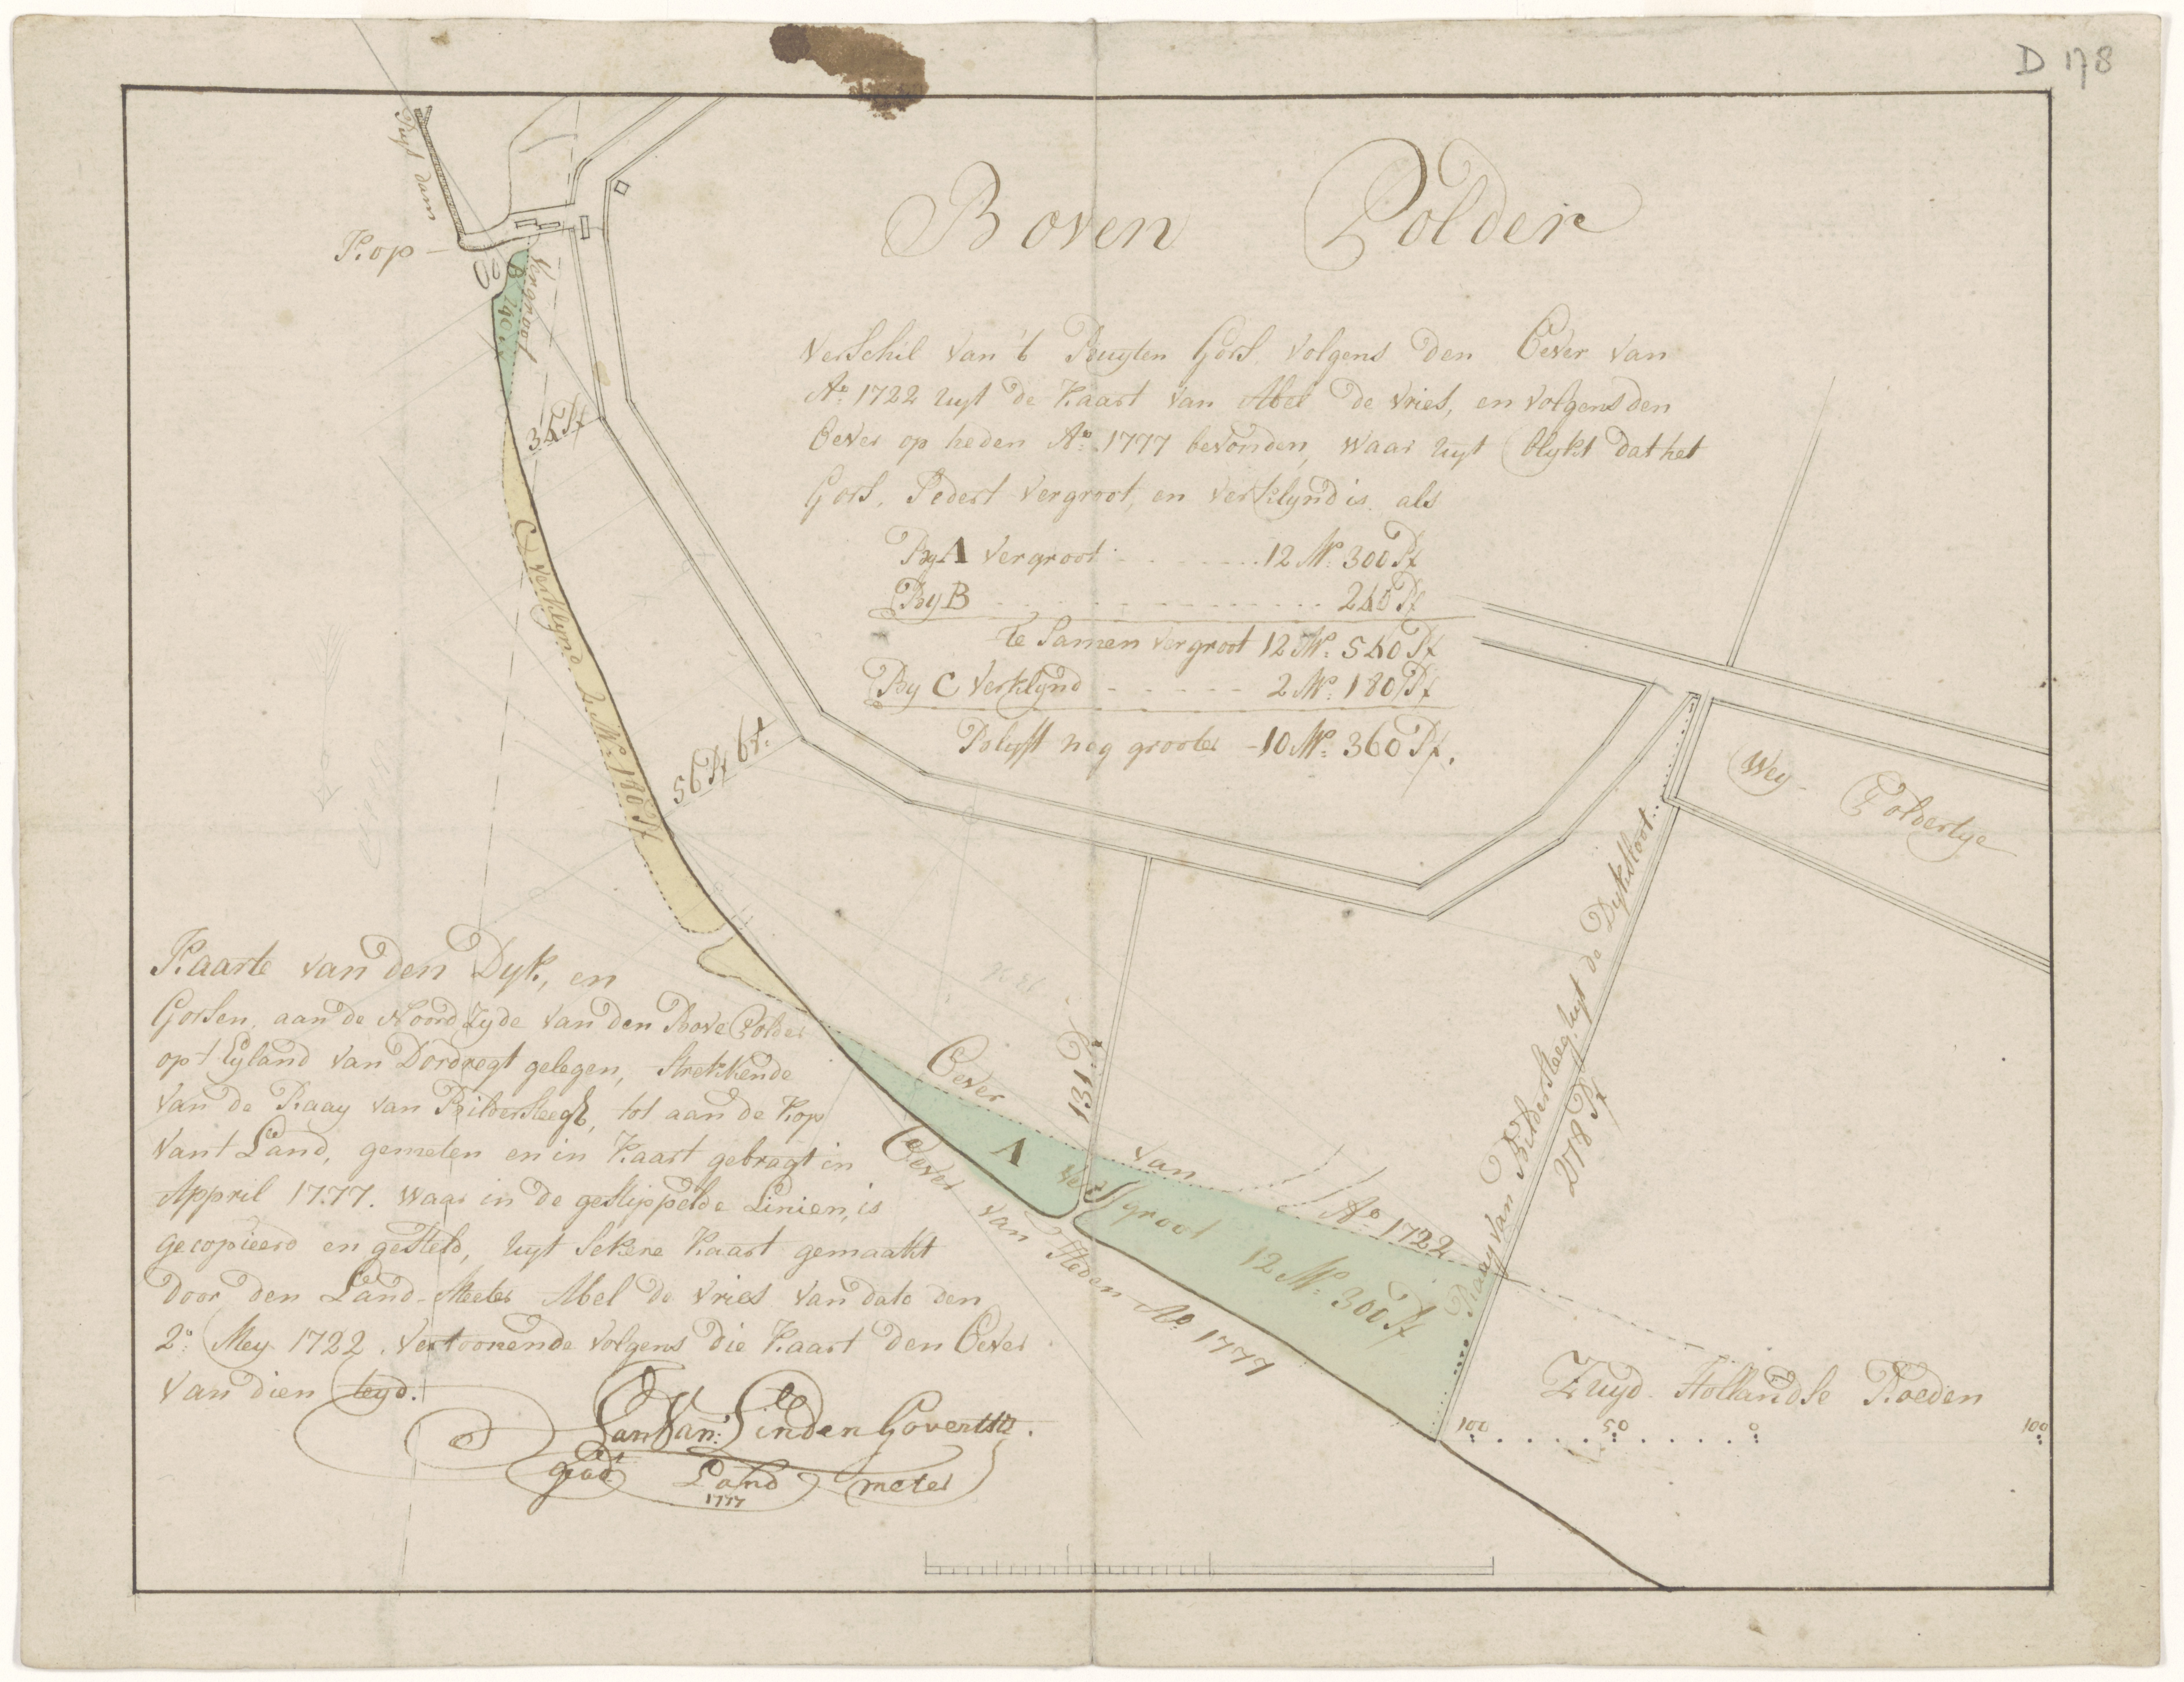 D 178
Boven Polder
Ruyt dam
Kop
B 240
Vergroot
34 Rt
C verklynd 2 Mo: 180 Rt
56 Rt 6 vt.
Verschil van 't Buyten Gors, volgens den Oever van
Ao. 1722 uyt de Kaart van Abel de Vries, en volgens den
Oever op heden Ao. 1777 bevonden, waar uyt blykt dat het
Gors, sedert vergroot, en verklynd is. als
By A vergroot . . . . . . 12 Mo: 300 Rt
By B . . . . . . . . . . . . 240 Rt
te samen vergroot 12 Mo: 540 Rt
By C verklynd - - - - - - 2 Mo: 180 Rt
Blyft nog grooter - 10 Mo: 360 Rt.
Wey Poldertye
Raay van Bildersteeg, uyt de Dyksloot.
278 Rt
131 Rt
Oever van Ao 1722
A vergroot 12 Mo: 300 Rt
Oever van Heden Ao 1777
Kaarte van den Dyk, en
Gorsen, aan de Noord Zyde van den Bove Polder
op 't Eyland van Dordregt gelegen, strekkende
van de Raay van Bildersteegt, tot aan de Kop
van 't Land, gemeten en in Kaart gebragt in
Appril 1777. waar in de gestippelde Linien, is
gecopieerd en gesteld, uyt sekere Kaart gemaakt
door den Land-Meeter Abel de Vries van dato den
2e. Mey 1722. vertoonende volgens die Kaart den Oever
van dien teyd.
Jan Van: der Linden Govertsz.
gead: Land meter
1777
Zuyd-Hollandse Roeden
100 50 0 100